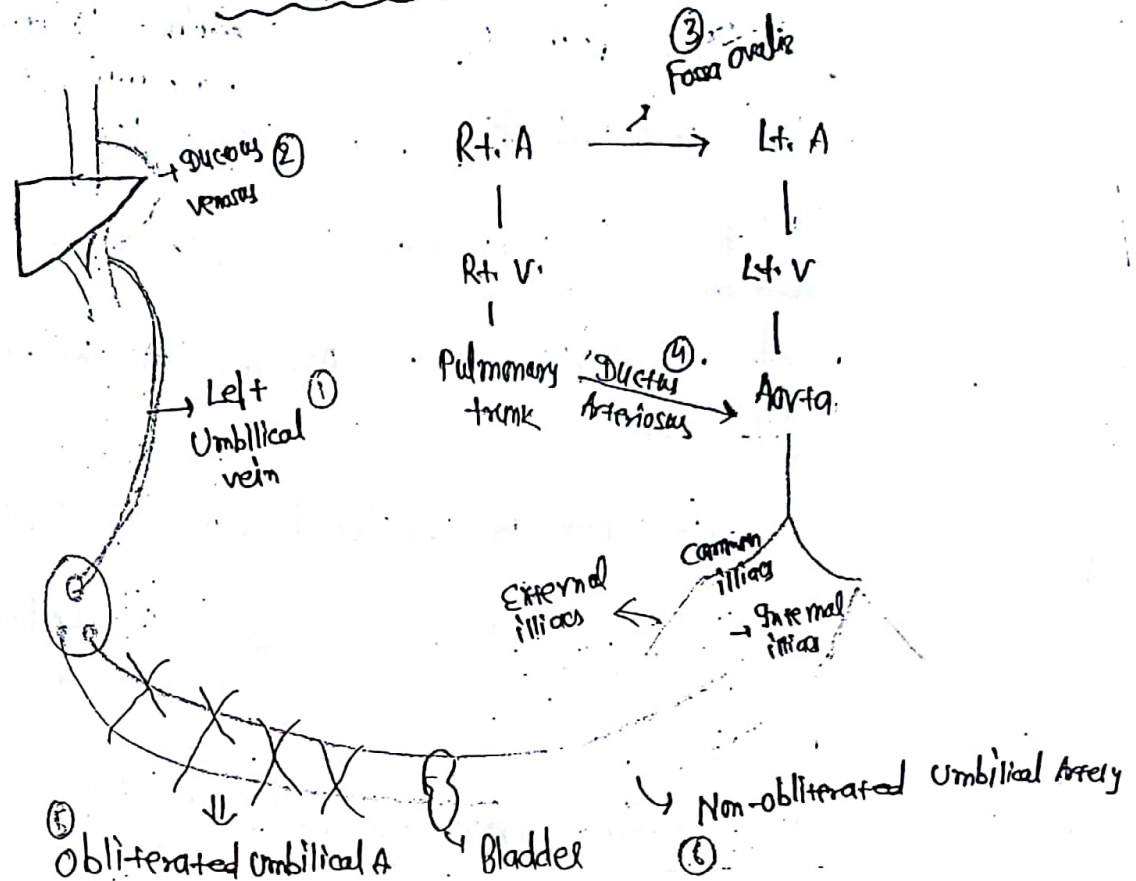 ③
Fossa ovalis
Rt. A
Lt. A
Ductous ②
venosus
Rt. V.
Lt. V
Pulmonary
trunk
Ductus ④
Arteriosus
Aorta.
Left ①
Umbilical
vein
Common
illiacs
External
illiacs
Internal
illiacs
Non-obliterated Umbilical Artery
⑥
⑤
Obliterated Umbilical A
Bladder